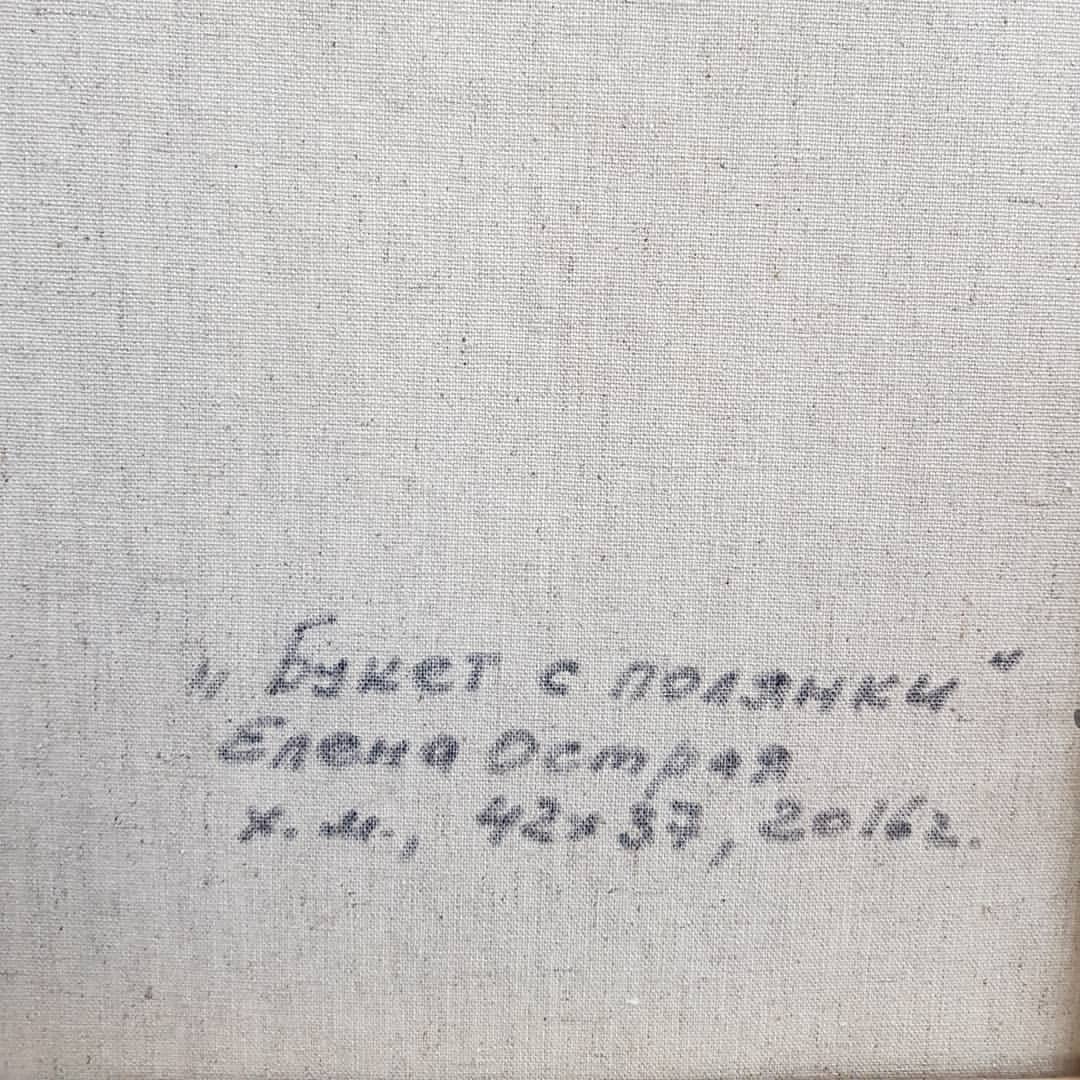 „Букет с полянки“
Елена Острая
х.м., 42х37, 2016г.